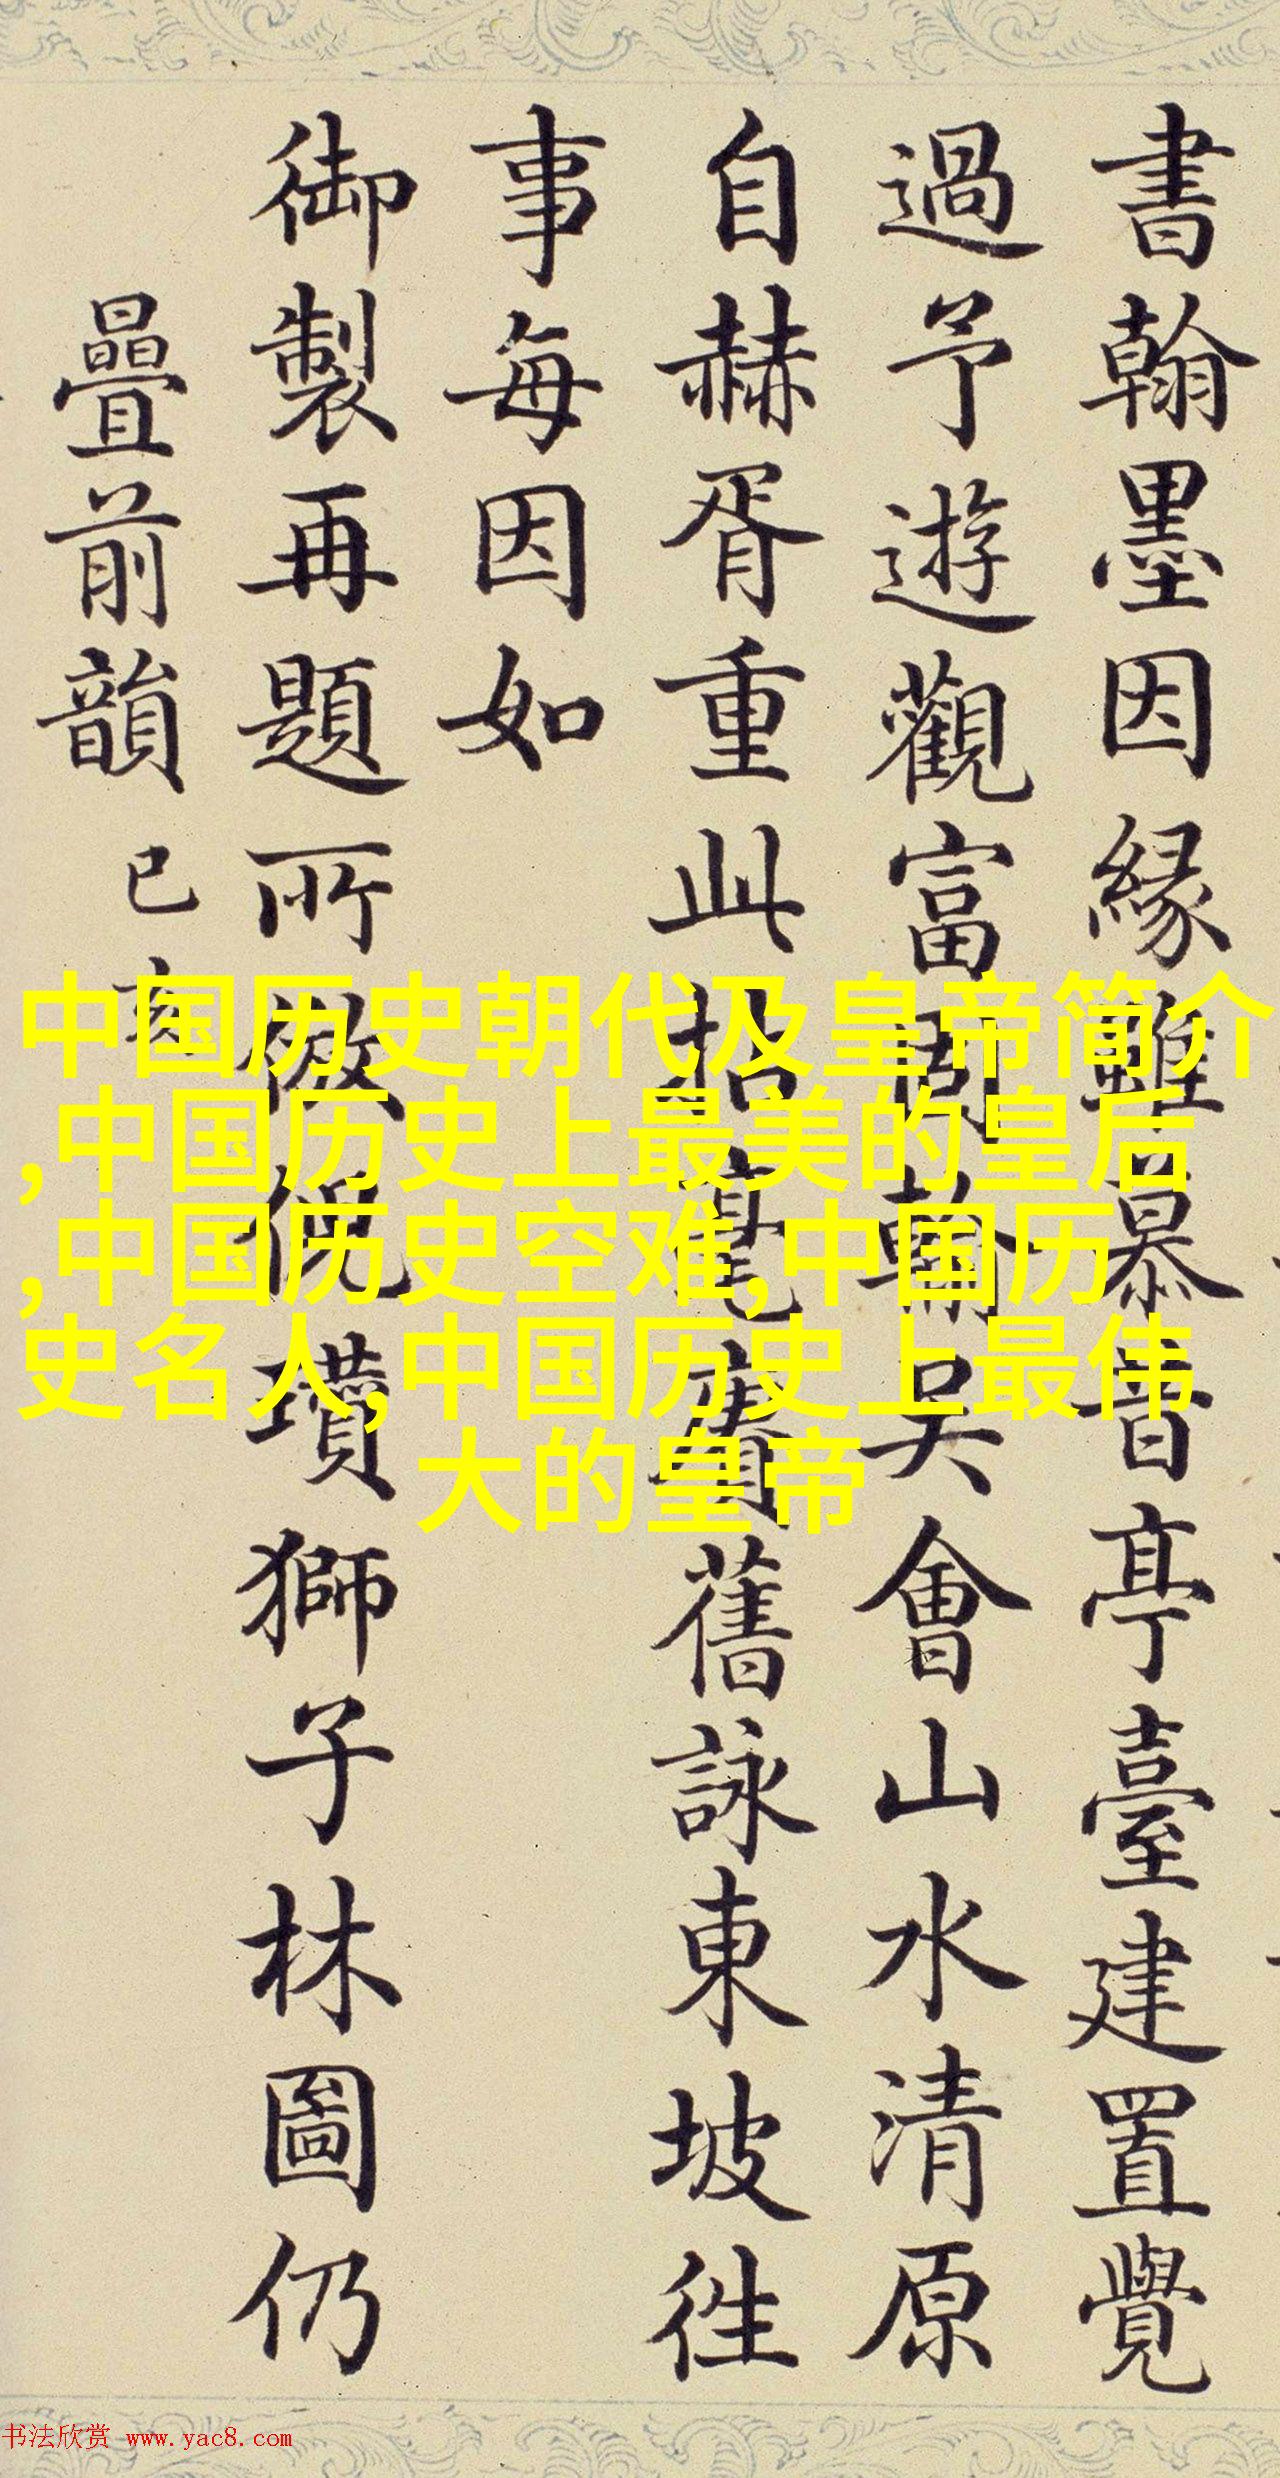 書翰墨因縁雖慕昔亭臺建置覺
過予遊觀富周翰吴會山水清原
自赫胥重此拈毫賡舊詠東坡徃
事每因如
御製再題所倣倪瓚獅子林圖仍
疊前韻 己亥
中国历史朝代及皇帝简介
,中国历史上最美的皇后
,中国历史空难,中国历
史名人,中国历史上最伟
大的皇帝
书法欣赏 www.yac8.com